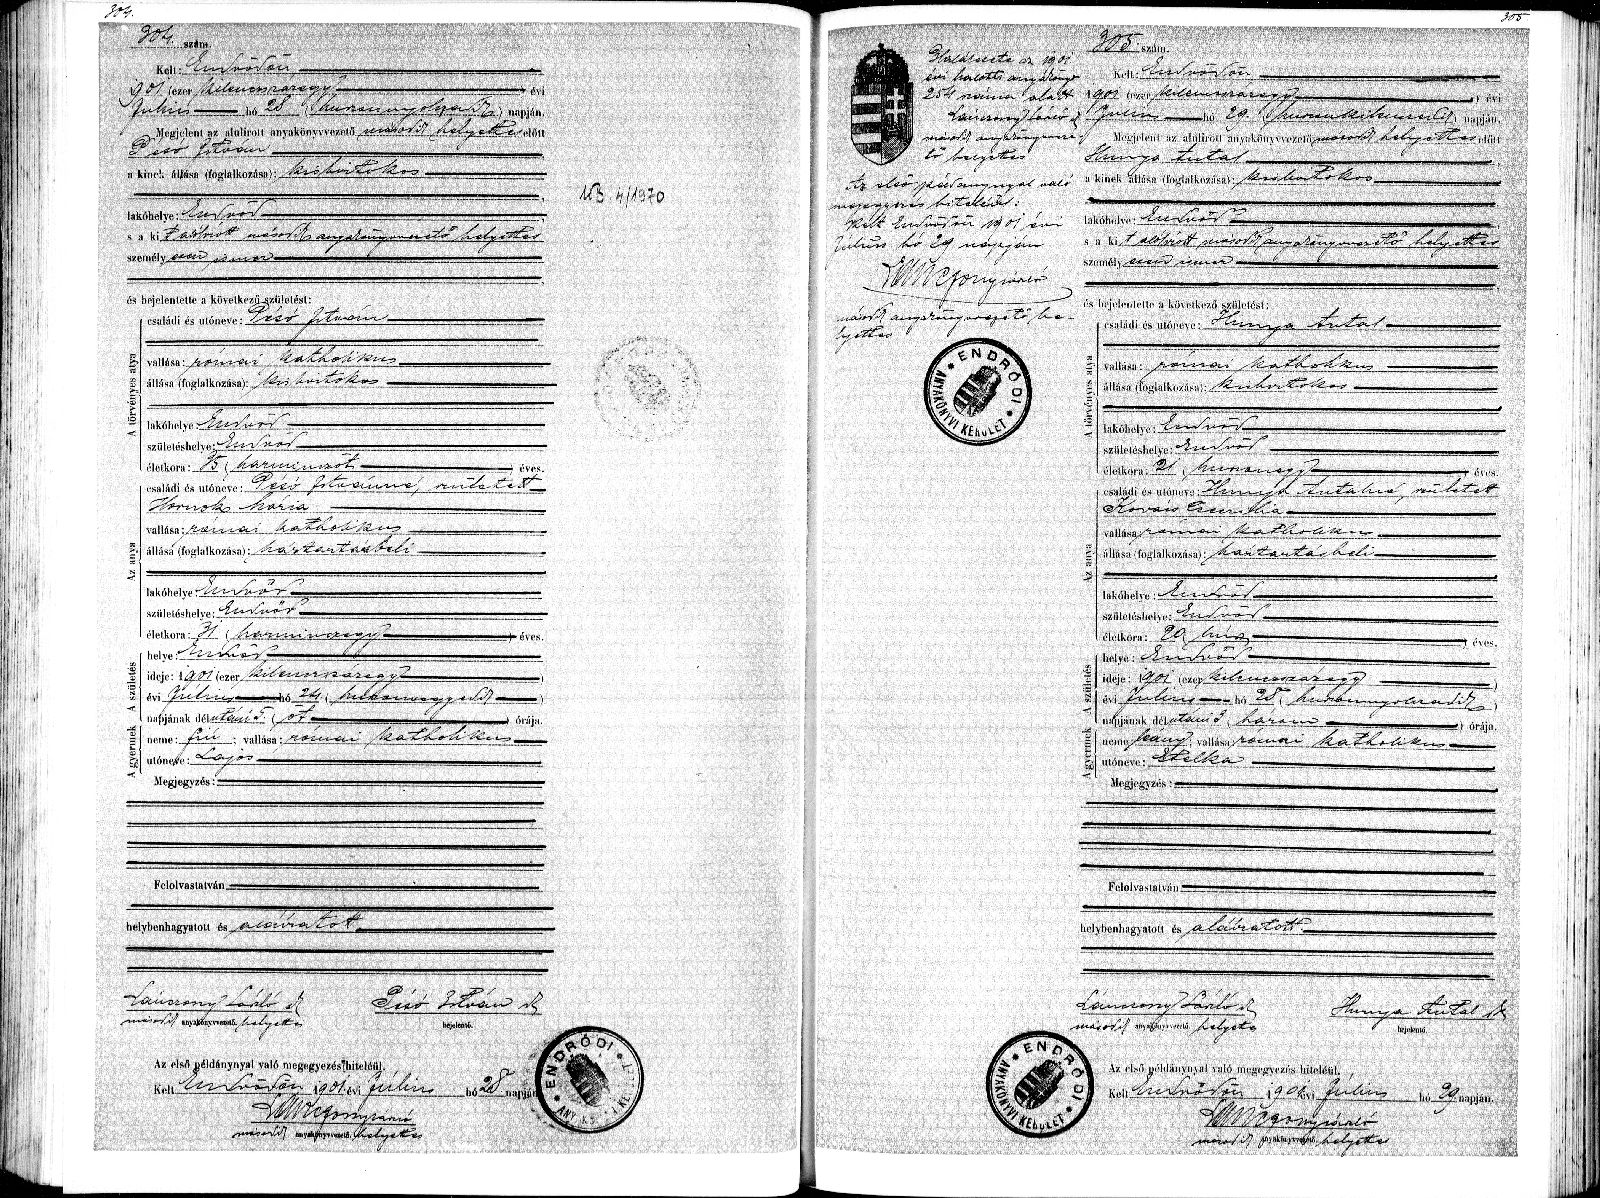 304.
304. szám.
Kelt: Endrődön
1901 (ezer kilencszázegy) évi
Július hó 28 (huszonnyolczadik) napján.
Megjelent az alulirott anyakönyvvezető másodh helyettes előtt
Pésó István
a kinek állása (foglalkozása): kisbirtokos
lakóhelye: Endrőd
s a kit alólirott másodh anyakönyvvezető helyettes
személyesen ismer
és bejelentette a következő születést:
A törvényes atya
családi és utóneve: Pésó István
vallása: római katholikus
állása (foglalkozása): kisbirtokos
lakóhelye Endrőd
születéshelye: Endrőd
életkora: 35 (harminczöt) éves.
Az anya
családi és utóneve: Pésó Istvánné, született
Hornok Mária
vallása: római katholikus
állása (foglalkozása): háztartásbeli
lakóhelye Endrőd
születéshelye: Endrőd
életkora: 31 (harminczegy) éves.
A születés
helye: Endrőd
ideje: 1901 (ezer kilenczszázegy)
évi Július hó 24 (huszonnegyedik)
napjának délutáni 5 (öt) órája.
A gyermek
neme: fiú; vallása: római katholikus
utóneve: Lajos
Megjegyzés:
Felolvastatván
helybenhagyatott és aláiratott.
másodh anyakönyvvezető helyettes
Pésó István
bejelentő.
Az első példánynyal való megegyezés hiteléül.
Kelt Endrődön 1901 évi Július hó 28 napján
másodh anyakönyvvezető helyettes
ENDRŐDI
4/1970
305
305 szám.
Kelt: Endrődön
1901 (ezer kilenczszázegy) évi
Július hó 29 (huszonkilenczedik) napján.
Megjelent az alulirott anyakönyvvezető másodh helyettes előtt
Hunya Antal
a kinek állása (foglalkozása): kisbirtokos
lakóhelye: Endrőd
s a kit alólirott másodh anyakönyvvezető helyettes
személyesen ismer
és bejelentette a következő születést:
A törvényes atya
családi és utóneve: Hunya Antal
vallása: római katholikus
állása (foglalkozása): kisbirtokos
lakóhelye: Endrőd
születéshelye: Endrőd
életkora: 21 (huszonegy) éves.
Az anya
családi és utóneve: Hunya Antalné, született
Kovács
vallása: római katholikus
állása (foglalkozása): háztartásbeli
lakóhelye: Endrőd
születéshelye: Endrőd
életkora: 20 (húsz) éves.
A születés
helye: Endrőd
ideje: 1901 (ezer kilenczszázegy)
évi Július hó 28 (huszonnyolczadik)
napjának délutáni 3 (három) órája.
A gyermek
neme: leány; vallása: római katholikus
utóneve: Etelka
Megjegyzés:
Felolvastatván
helybenhagyatott és aláiratott.
másodh anyakönyvvezető helyettes
Hunya Antal
bejelentő.
Az első példánynyal való megegyezés hiteléül.
Kelt Endrődön 1901 évi Július hó 29 napján.
másodh anyakönyvvezető helyettes
ENDRŐDI
ANYAKÖNYVI KERÜLET
Halálesete az 1901
évi halotti anyakönyv
254 száma alatt
másodh anyakönyvveze-
tő helyettes
Az első példánynyal való
megegyezés hiteléül:
Kelt Endrődön 1901 évi
Július hó 29 napján
másodh anyakönyvvezető he-
lyettes
ENDRŐDI
ANYAKÖNYVI KERÜLET